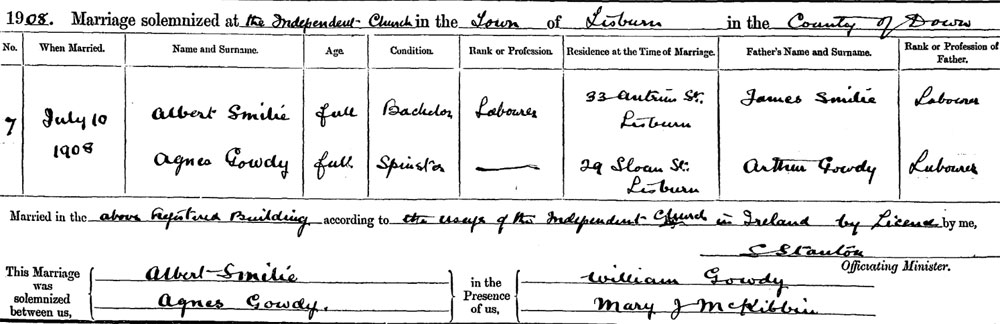 1908. Marriage solemnized at the Independent Church in the Town of Lisburn in the County of Down
No. When Married. Name and Surname. Age. Condition. Rank or Profession. Residence at the Time of Marriage. Father's Name and Surname. Rank or Profession of Father.
7 July 10 1908 Albert Smilie full Bachelor Labourer 33 Antrim St. Lisburn James Smilie Labourer
Agnes Gowdy full. Spinster — 29 Sloan St. Lisburn Arthur Gowdy Labourer
Married in the above Registered Building according to the usage of the Independent Church in Ireland by Licence by me,
S Stanton
Officiating Minister.
This Marriage was solemnized between us, Albert Smilie in the Presence of us, William Gowdy
Agnes Gowdy. Mary J McKibbin